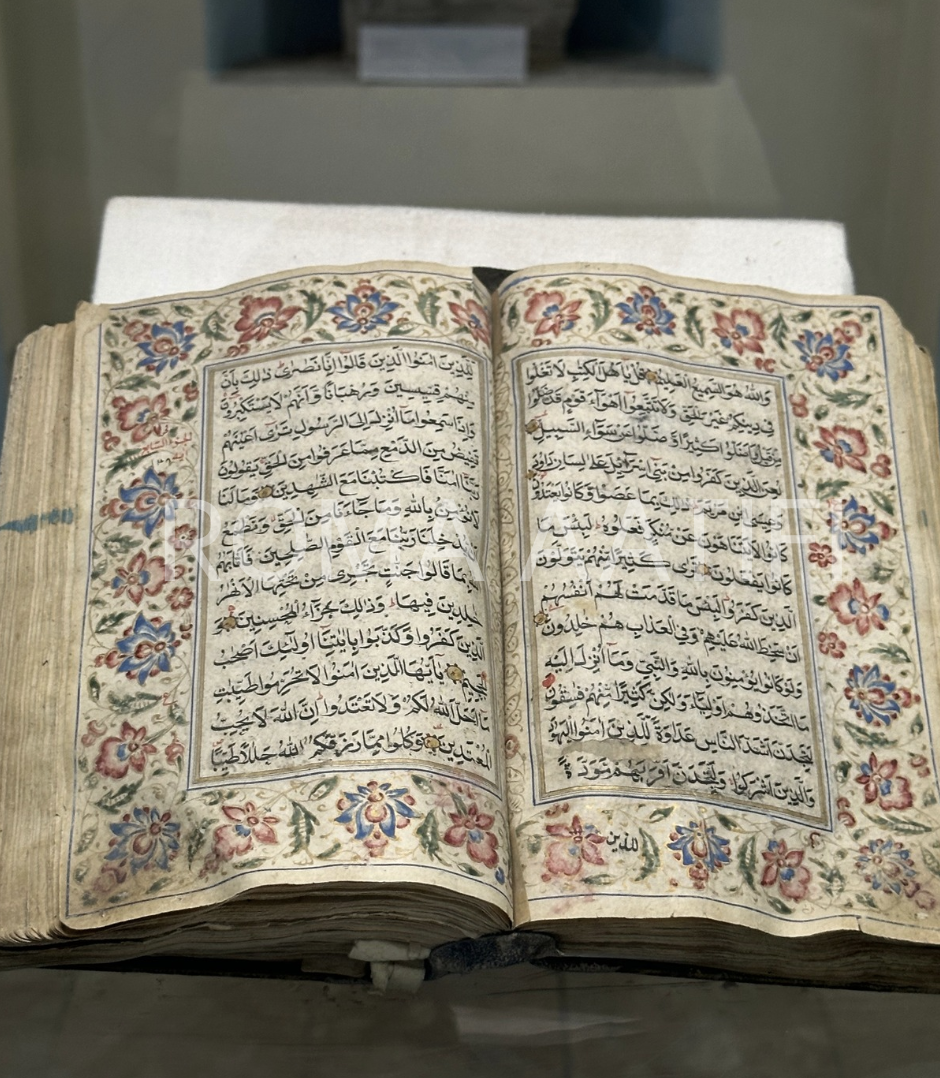 والله هو السميع العليم قل يا اهل الكتب لا تغلوا
في دينكم غير الحق ولا تتبعوا اهواء قوم قد ضلوا
من قبل واضلوا كثيرا و ضلوا عن سواء السبيل
لعن الذين كفروا من بني اسرائيل على لسان داود
وعيسى ابن مريم ذلك بما عصوا وكانوا يعتدون
كانوا لا يتناهون عن منكر فعلوه لبئس ما
كانوا يفعلون ترى كثيرا منهم يتولون
الذين كفروا لبئس ما قدمت لهم انفسهم
ان سخط الله عليهم وفي العذاب هم خلدون
ولو كانوا يؤمنون بالله والنبي وما انزل اليه
ما اتخذوهم اولياء ولكن كثيرا منهم فسقون
لتجدن اشد الناس عداوة للذين امنوا اليهود
والذين اشركوا ولتجدن اقربهم مودة
للذين
للذين امنوا الذين قالوا انا نصرى ذلك بان
منهم قسيسين ورهبانا وانهم لا يستكبرون
واذا سمعوا ما انزل الى الرسول ترى اعينهم
تفيض من الدمع مما عرفوا من الحق يقولون
ربنا امنا فاكتبنا مع الشهدين وما لنا
لا نؤمن بالله وما جاءنا من الحق ونطمع
ان يدخلنا ربنا مع القوم الصلحين فاثابهم
الله بما قالوا جنت تجري من تحتها الانهر
خلدين فيها وذلك جزاء المحسنين و
الذين كفروا وكذبوا بايتنا اولئك اصحب
الجحيم يايها الذين امنوا لا تحرموا طيبت
ما احل الله لكم ولا تعتدوا ان الله لا يحب
المعتدين وكلوا مما رزقكم الله حللا طيبا
ROMA AATIFI